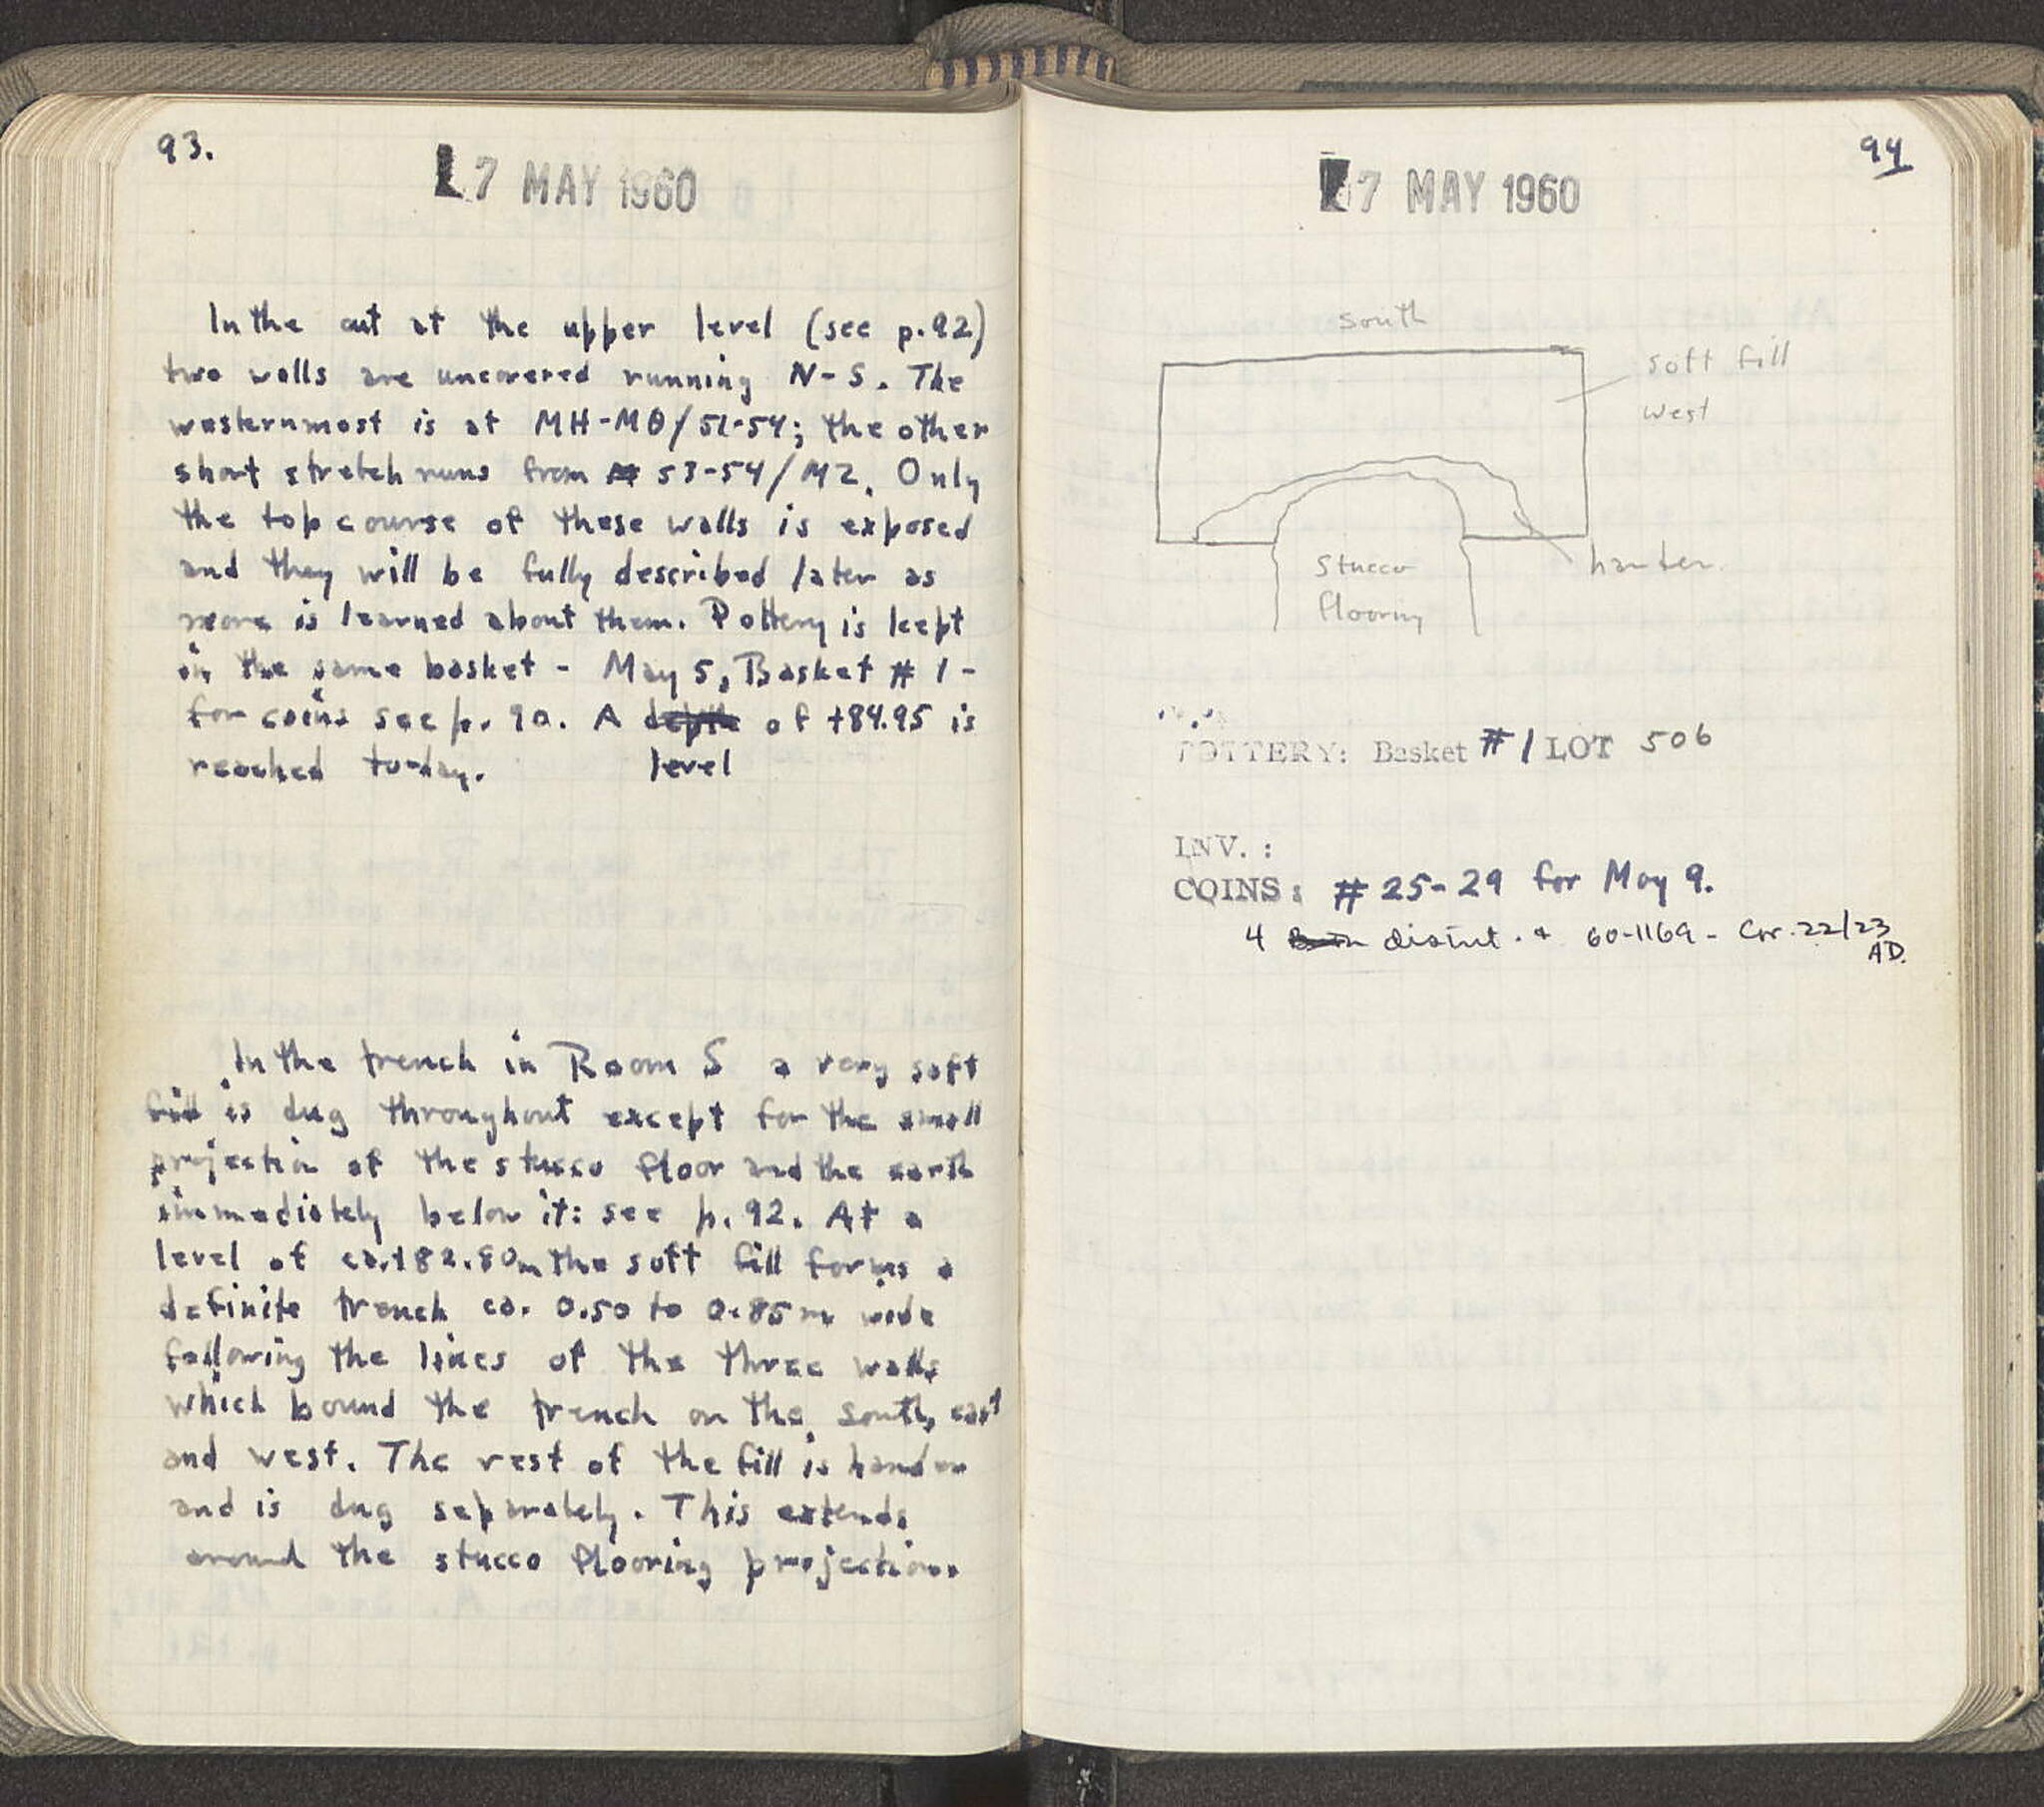 93.
7 MAY 1960
In the cut at the upper level (see p. 92)
two walls are uncovered running N-S. The
westernmost is at MH-MΘ/51-54; the other
short stretch runs from 53-54/MZ. Only
the top course of these walls is exposed
and they will be fully described later as
more is learned about them. Pottery is kept
in the same basket - May 5, Basket # 1 -
for coins see p. 90. A depth of +84.95 is
reached to-day. level
In the trench in Room S a very soft
fill is dug throughout except for the small
projection of the stucco floor and the earth
immediately below it: see p. 92. At a
level of ca. +82.80m the soft fill forms a
definite trench ca. 0.50 to 0.85 m wide
following the lines of the three walls
which bound the trench on the south, east
and west. The rest of the fill is harder
and is dug separately. This extends
around the stucco flooring projection.
94
7 MAY 1960
south
soft fill
west
harder.
stucco
flooring
POTTERY: Basket #1 LOT 506
INV. :
COINS: # 25-29 for May 9.
4 disint. + 60-1169 - Cor. 22/23
AD.